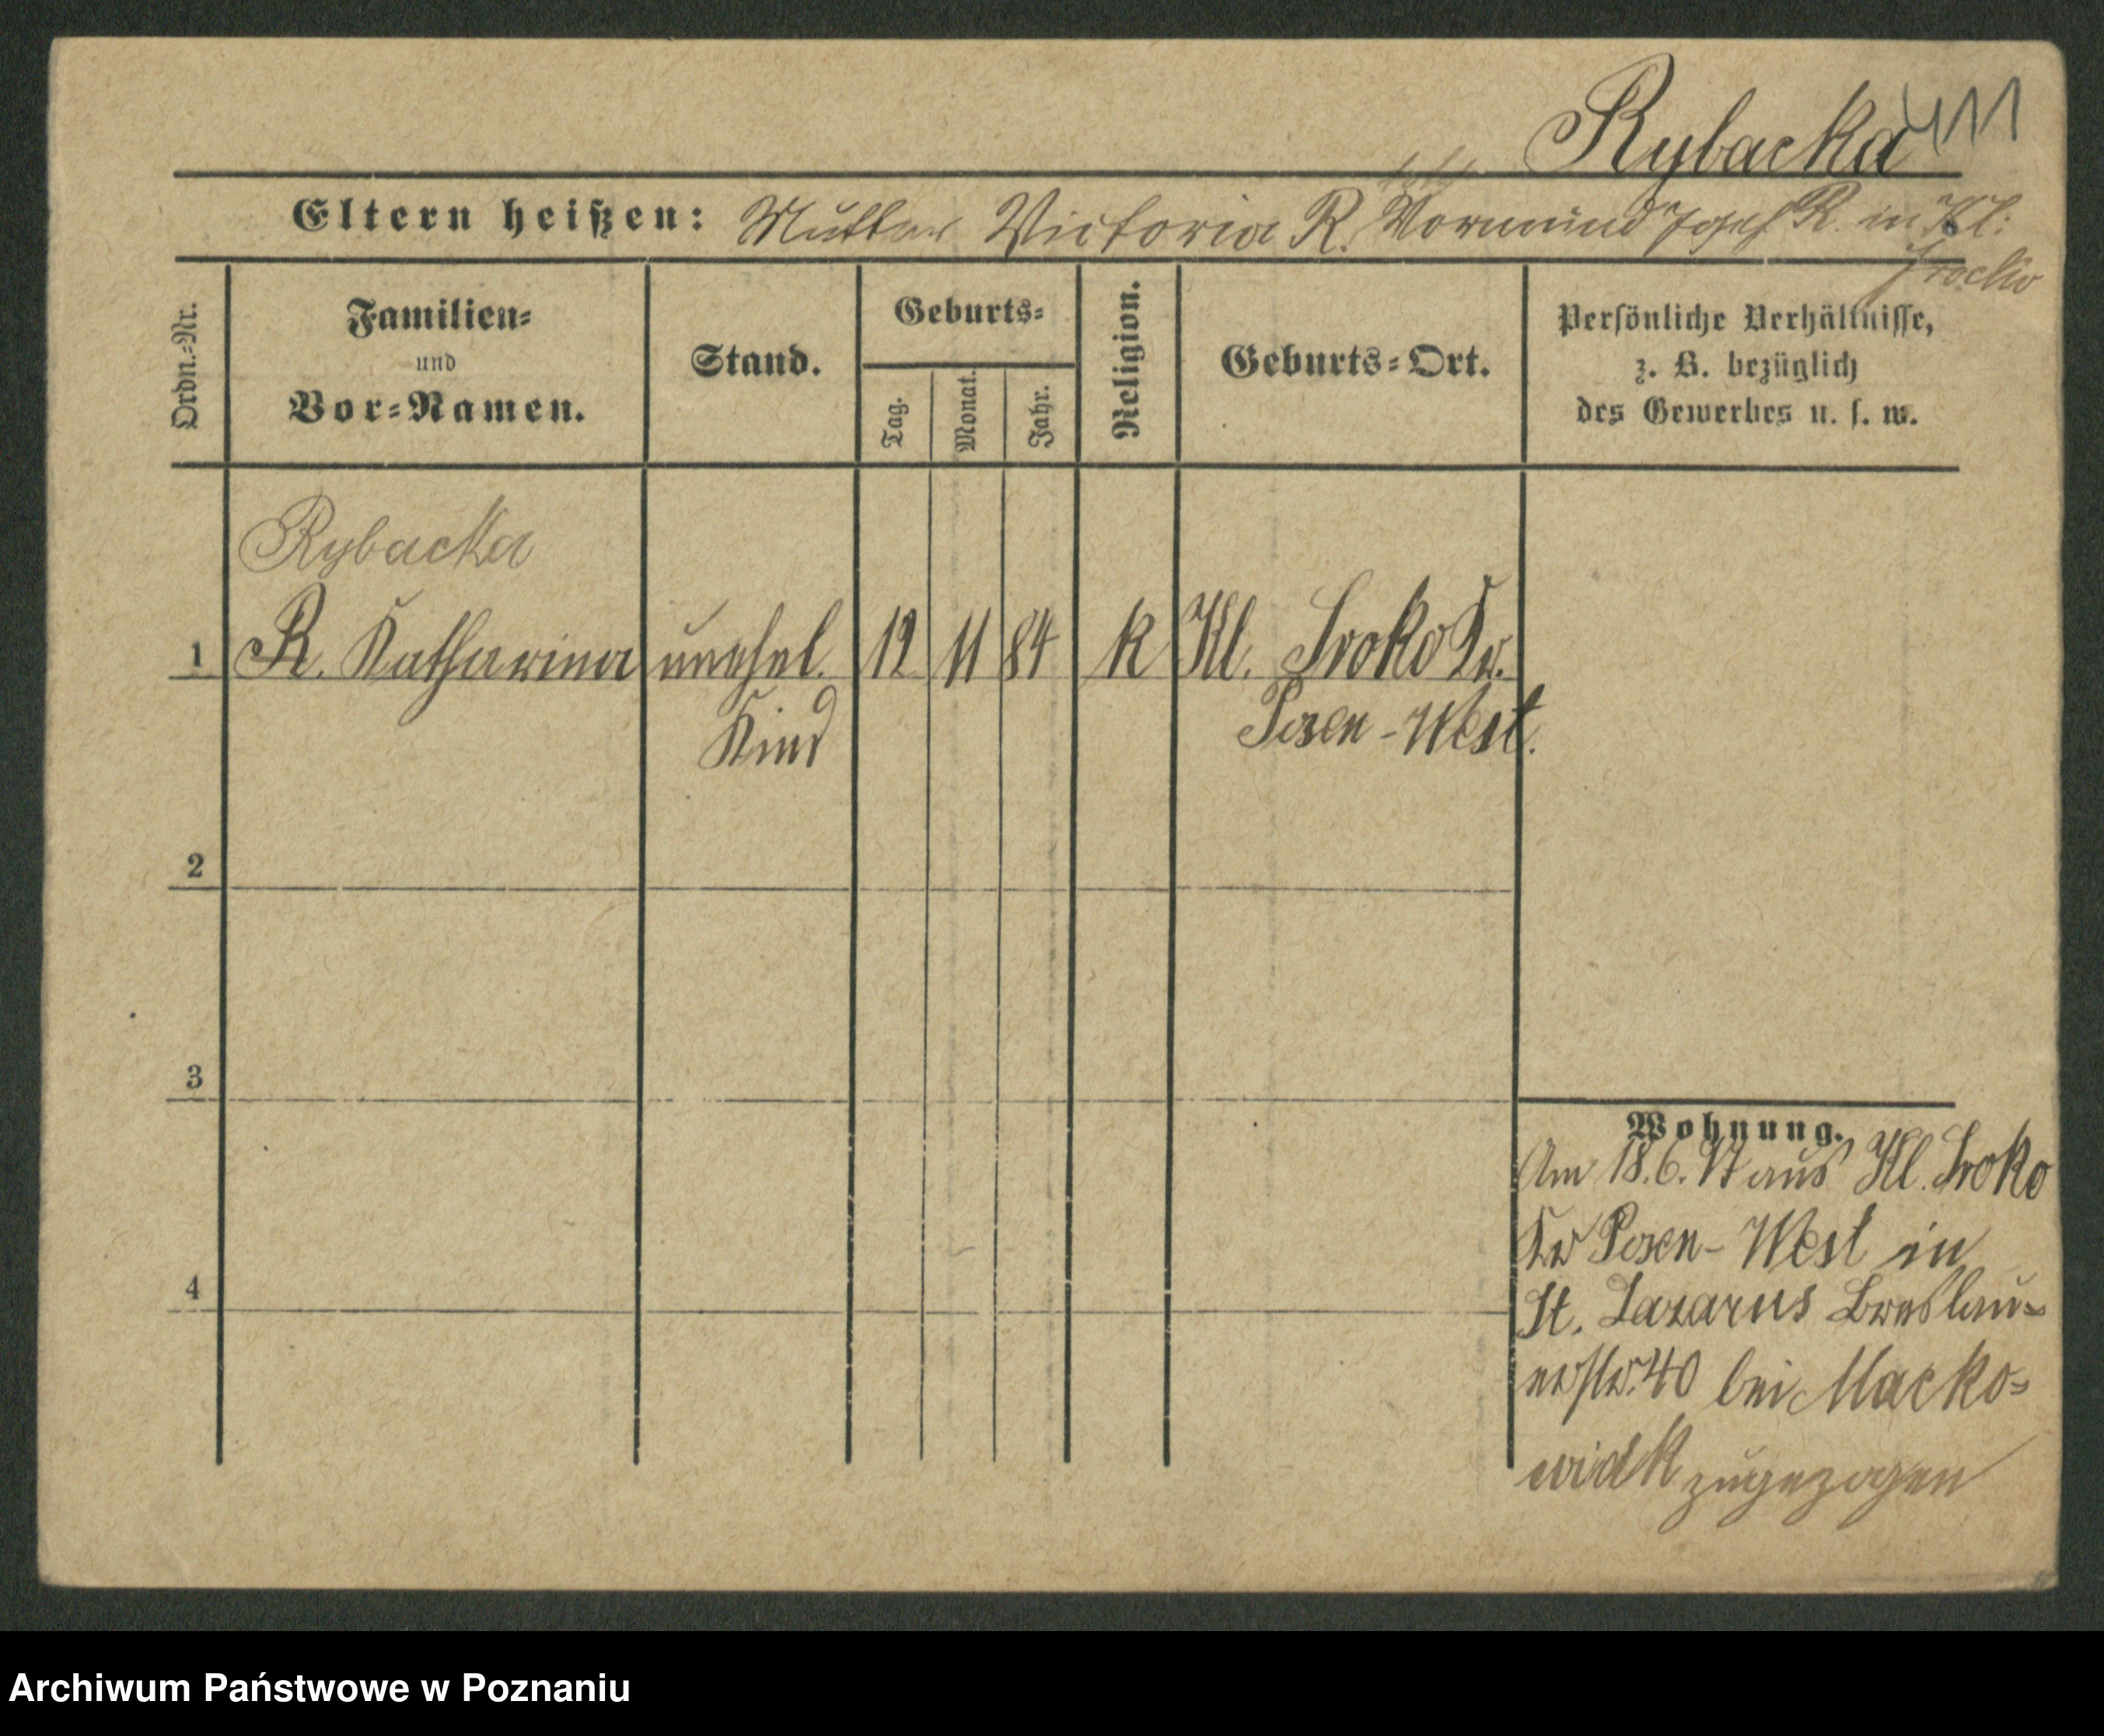 Rybacka
Eltern heißen: Mutter Victoria R. Vormund Josef R. in Kl:
Ordn.-Nr.
Familien-
und
Vor-Namen.
Stand.
Geburts-
Tag.
Monat.
Jahr.
Religion.
Geburts-Ort.
Persönliche Verhältnisse,
z. B. bezüglich
des Gewerbes u. s. w.
Rybacka
1 R. Katharina unehel. 12 11 84 k Kl. Sroko Kr.
Kind Posen-West.
2
3
4
Wohnung.
Am 18.6. aus Kl. Sroko
Kr Posen-West in
St. Lazarus Breslau-
erstr. 40 bei Macko-
zugezogen
Archiwum Państwowe w Poznaniu